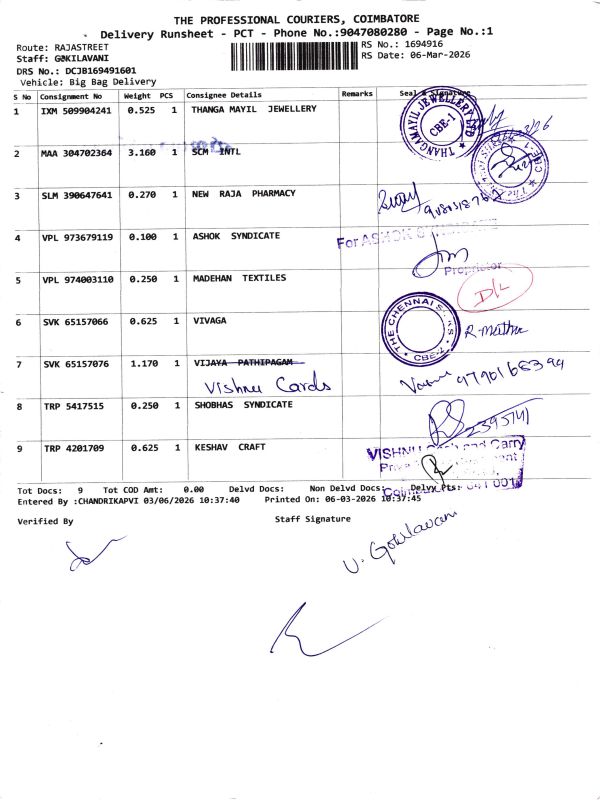 THE PROFESSIONAL COURIERS, COIMBATORE
Delivery Runsheet - PCT - Phone No.:9047080280 - Page No.:1
Route: RAJASTREET
RS No.: 1694916
Staff: GOKILAVANI
RS Date: 06-Mar-2026
DRS No.: DCJB169491601
Vehicle: Big Bag Delivery
S No Consignment No Weight PCS Consignee Details Remarks Seal & Signature
1 IXM 509904241 0.525 1 THANGA MAYIL JEWELLERY
THANGAMAYIL JEWELLERY LTD
CBE-1
2 MAA 304702364 3.160 1 SCM INTL
CBE-1
3 SLM 390647641 0.270 1 NEW RAJA PHARMACY
4 VPL 973679119 0.100 1 ASHOK SYNDICATE
For ASHOK
Proprietor
5 VPL 974003110 0.250 1 MADEHAN TEXTILES
D/L
6 SVK 65157066 0.625 1 VIVAGA
THE CHENNAI SILKS
CBE-2
7 SVK 65157076 1.170 1 VIJAYA PATHIPAGAM
Vishnu Cards
8 TRP 5417515 0.250 1 SHOBHAS SYNDICATE
9 TRP 4201709 0.625 1 KESHAV CRAFT
VISHNU Cash and Carry
Tot Docs: 9 Tot COD Amt: 0.00 Delvd Docs: Non Delvd Docs: Delvy Pts:
Entered By :CHANDRIKAPVI 03/06/2026 10:37:40 Printed On: 06-03-2026 10:37:45
Verified By Staff Signature
V. Gokilavani